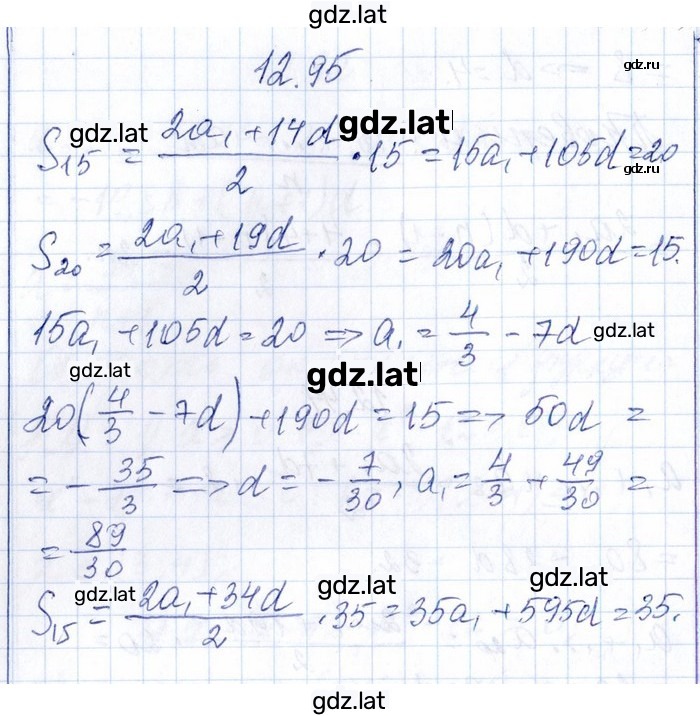 gdz.lat
12.95
gdz.ru
gdz.lat gdz.lat
S₁₅ = (2a₁ + 14d)/2 · 15 = 15a₁ + 105d = 20
gdz.lat
S₂₀ = (2a₁ + 19d)/2 · 20 = 20a₁ + 190d = 15.
15a₁ + 105d = 20 => a₁ = 4/3 - 7d
gdz.lat
gdz.lat gdz.lat
20(4/3 - 7d) + 190d = 15 => 50d =
= - 35/3 => d = - 7/30, a₁ = 4/3 + 49/30 =
= 89/30
gdz.lat gdz.lat gdz.lat
S₁₅ = (2a₁ + 34d)/2 · 35 = 35a₁ + 595d = 35.
gdz.lat